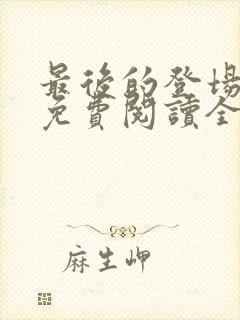 最後的登場
免費閱讀全
麻生岬